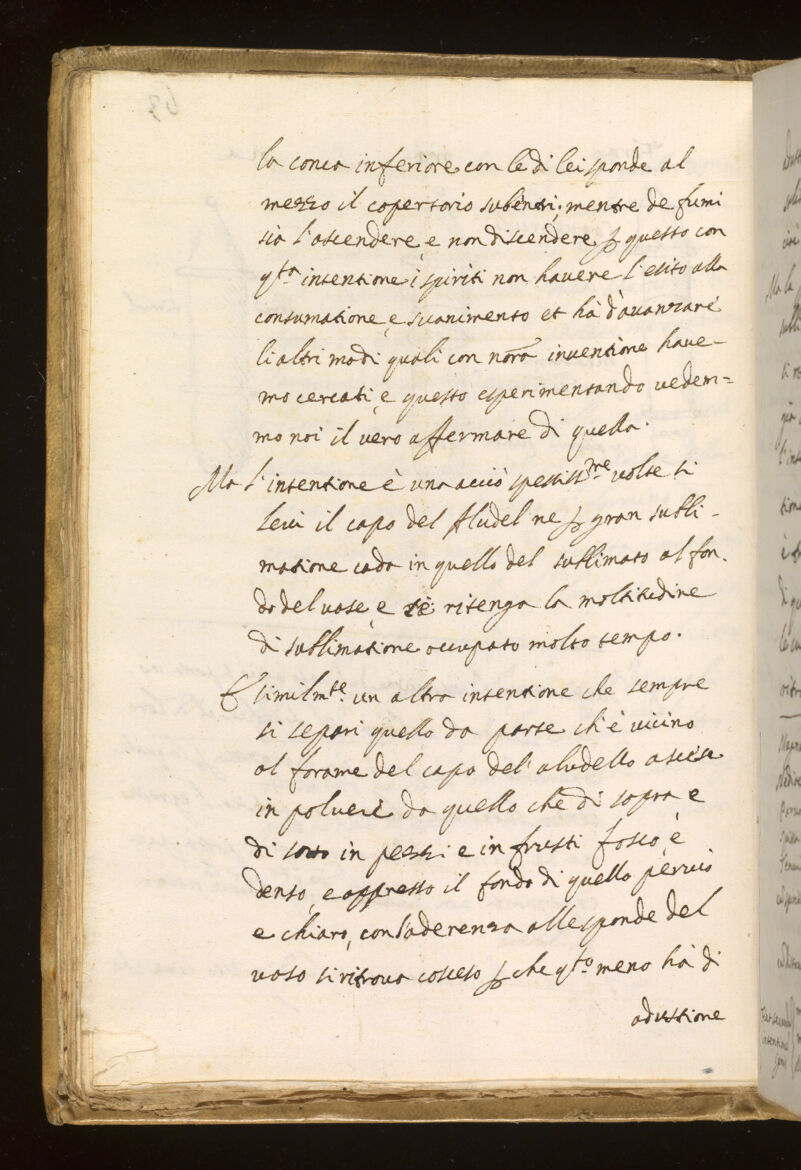 la conca inferiore con le di lei sponde al
mezzo il copertorio subentri, mentre de fumi
sia l'ascendere, e non discendere, p questo con
q.ta intentione i spiriti non havere l'esito alla
consumatione, e suanimento et hà d'auanzare
li altri modi quali con nõra inventione have-
mo cercati, e questo esperimentando vedem=
mo noi il vero affermare di quella.
Ma l'intentione è una acciò spessiss.me volte si
levi il capo del Aludel ne p gran subli-
matione cada in quello del sublimato al fon-
do del vase, e si ritenga la moltitudine
di sublimatione occupato molto tempo.
E similm.te un altra intentione che sempre
si separi quello da parte ch'è vicino
al forame del capo del' aludello ascese
in polvere da quello che di sopra e
di sotto in pezzi e in frusti fosco, e
denso, e appresso il fondo di quello pervio
e chiaro, con l'aderenza alle sponde del
vaso si ritrova p che q.to meno hà di
adustione